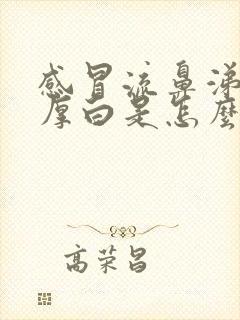 感冒流鼻涕
厚白是怎麼
高荣昌